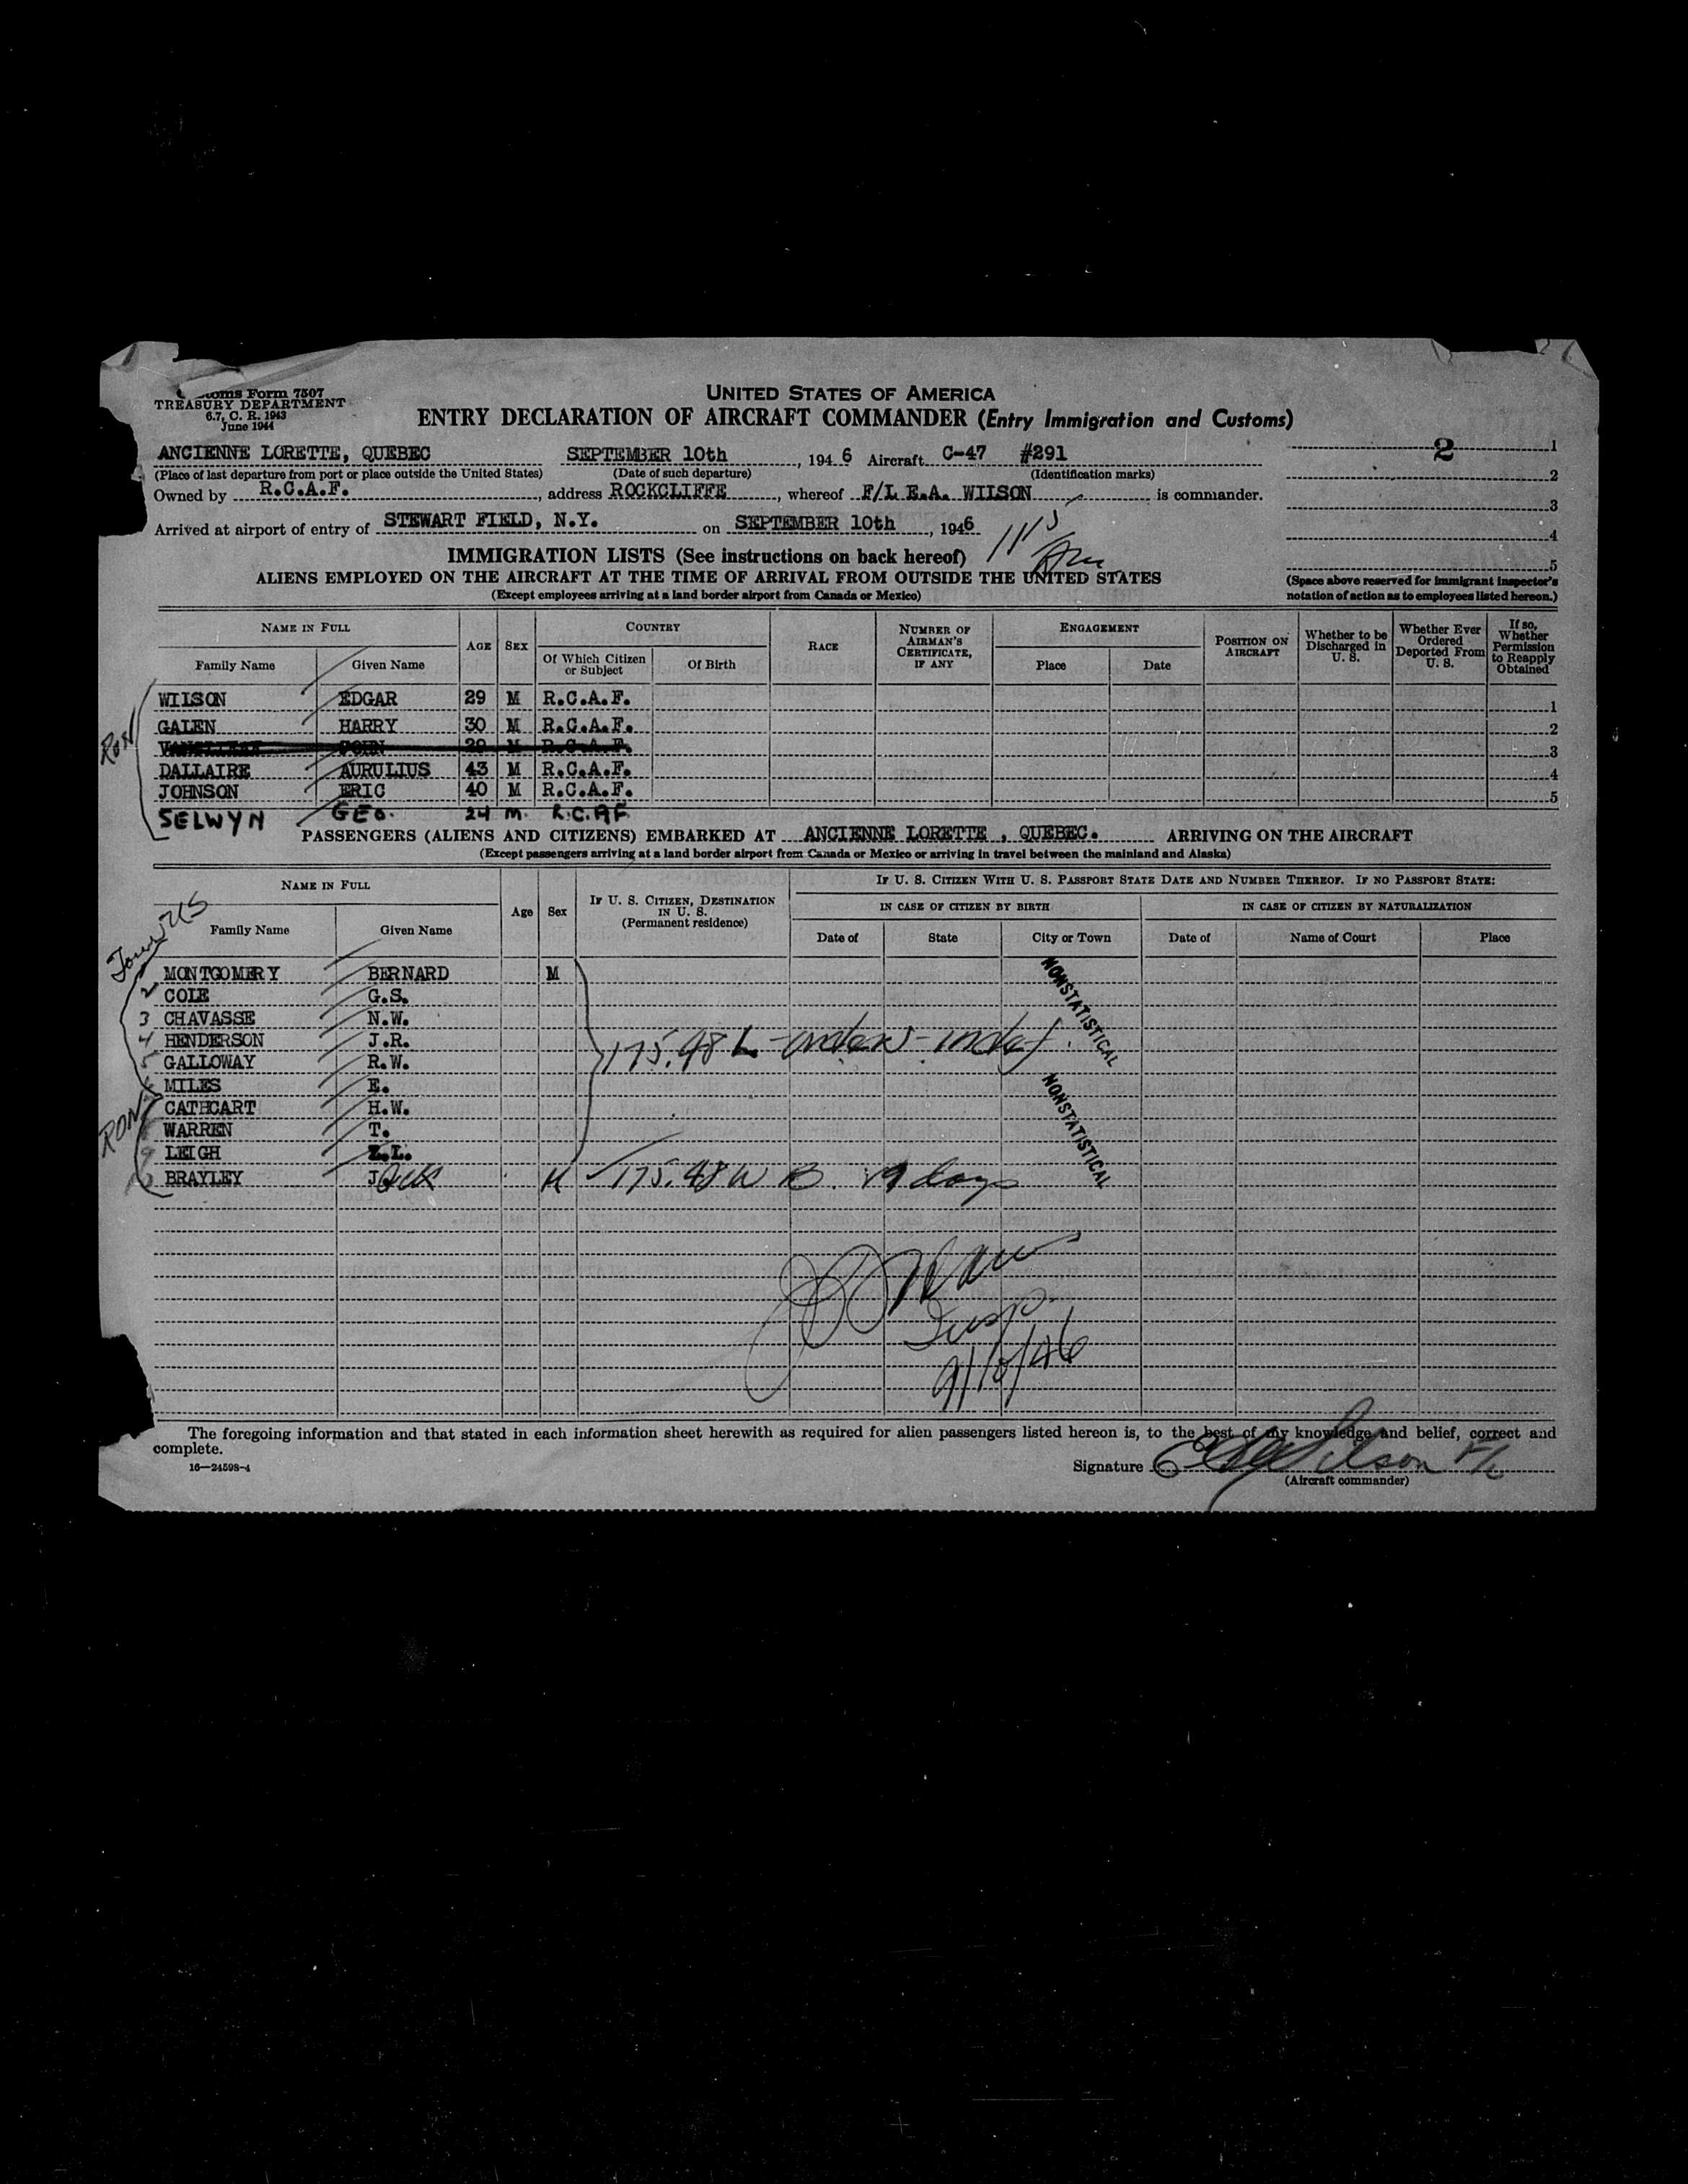 Customs Form 7507
TREASURY DEPARTMENT
6.7, C. R. 1943
June 1944
UNITED STATES OF AMERICA
ENTRY DECLARATION OF AIRCRAFT COMMANDER (Entry Immigration and Customs)
ANCIENNE LORETTE, QUEBEC SEPTEMBER 10th, 1946 Aircraft C-47 #291
(Place of last departure from port or place outside the United States) (Date of such departure) (Identification marks)
Owned by R.C.A.F., address ROCKCLIFFE, whereof F/L E.A. WILSON is commander.
Arrived at airport of entry of STEWART FIELD, N.Y. on SEPTEMBER 10th, 1946
2 1
2
3
4
5
(Space above reserved for immigrant inspector's
notation of action as to employees listed hereon.)
IMMIGRATION LISTS (See instructions on back hereof)
ALIENS EMPLOYED ON THE AIRCRAFT AT THE TIME OF ARRIVAL FROM OUTSIDE THE UNITED STATES
(Except employees arriving at a land border airport from Canada or Mexico)
NAME IN FULL AGE SEX COUNTRY RACE NUMBER OF AIRMAN'S CERTIFICATE, IF ANY ENGAGEMENT POSITION ON AIRCRAFT Whether to be Discharged in U. S. Whether Ever Ordered Deported From U. S. If so, Whether Permission to Reapply Obtained
Family Name Given Name Of Which Citizen or Subject Of Birth Place Date
WILSON EDGAR 29 M R.C.A.F. 1
GALEN HARRY 30 M R.C.A.F. 2
JOHN 29 M R.C.A.F. 3
DALLAIRE AURULIUS 43 M R.C.A.F. 4
JOHNSON ERIC 40 M R.C.A.F. 5
SELWYN GEO. 24 M. R.C.A.F.
RON
PASSENGERS (ALIENS AND CITIZENS) EMBARKED AT ANCIENNE LORETTE , QUEBEC. ARRIVING ON THE AIRCRAFT
(Except passengers arriving at a land border airport from Canada or Mexico or arriving in travel between the mainland and Alaska)
NAME IN FULL Age Sex IF U. S. CITIZEN, DESTINATION IN U. S. (Permanent residence) IF U. S. CITIZEN WITH U. S. PASSPORT STATE DATE AND NUMBER THEREOF. IF NO PASSPORT STATE:
IN CASE OF CITIZEN BY BIRTH IN CASE OF CITIZEN BY NATURALIZATION
Family Name Given Name Date of State City or Town Date of Name of Court Place
MONTGOMERY BERNARD M
2 COLE G.S.
3 CHAVASSE N.W.
4 HENDERSON J.R.
5 GALLOWAY R.W.
MILES E.
CATHCART H.W.
WARREN T.
9 LEIGH L.L.
BRAYLEY Jack M 175.48 W B 29 days
RON
175.48 L
NONSTATISTICAL
NONSTATISTICAL
Insp.
9/10/46
The foregoing information and that stated in each information sheet herewith as required for alien passengers listed hereon is, to the best of my knowledge and belief, correct and
complete.
16—24598-4
Signature E A Wilson F/L
(Aircraft commander)